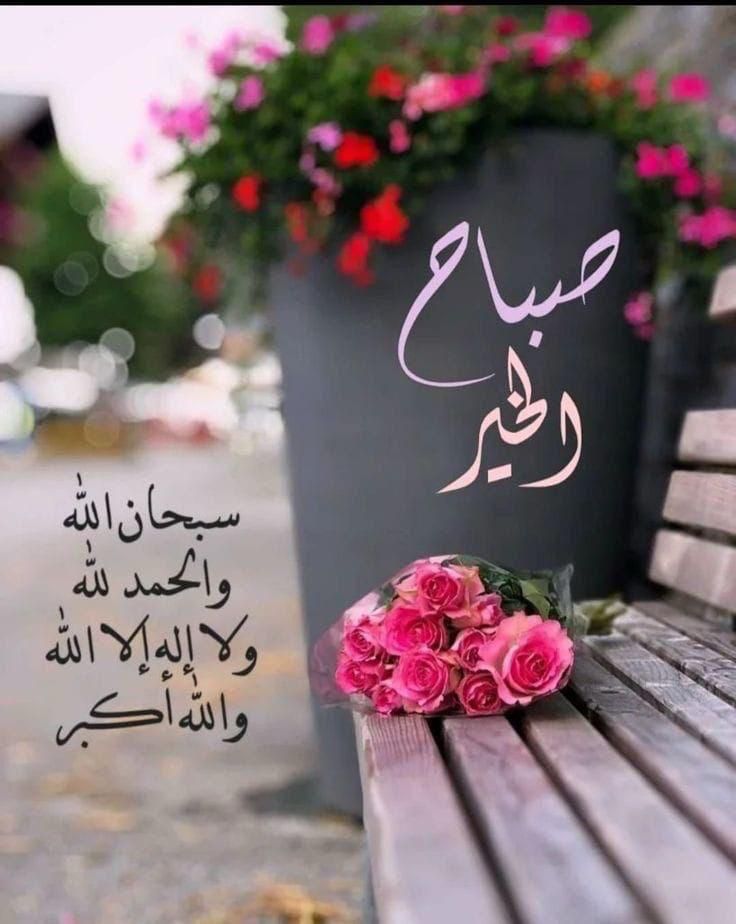 صباح
الخير
سبحان الله
والحمد لله
ولا إله إلا الله
والله أكبر